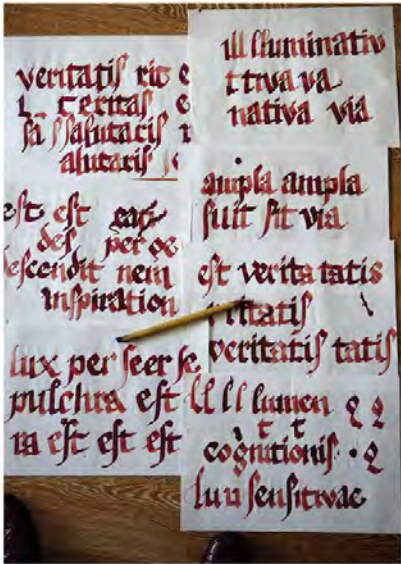 veritatis rit e
L ceritas e
sa ssalutaris
alutaris
est est
des per
descendit nem
inspiration
lux per seer se
pulchra est
ra est est est
ill lluminativ
ttiva va
nativa via
ampla ampla
suit sit via
est verita tatis
ritatis
veritatis tatis
ll ll lumen
t t
cognitionis
lu u sensitivae